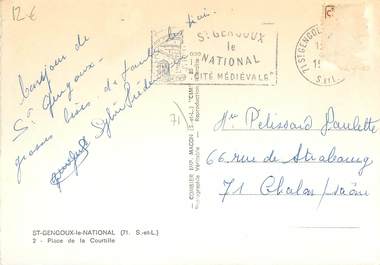 12€
Bonjour de
St Gengoux.
grosses bises d'
Sylvie Frédéric
71)
ST GENGOUX
le
NATIONAL
"CITÉ MÉDIÉVALE"
71 ST GENGOUX
S et L
COMBIER IMP. MACON (S.-et-L.) "CIM"
Photographie Véritable - Reproduction
Mme Pelissard Paulette
66 rue de Strasbourg
71 Chalon/saône
ST-GENGOUX-le-NATIONAL (71. S.-et-L.)
2 - Place de la Courtille